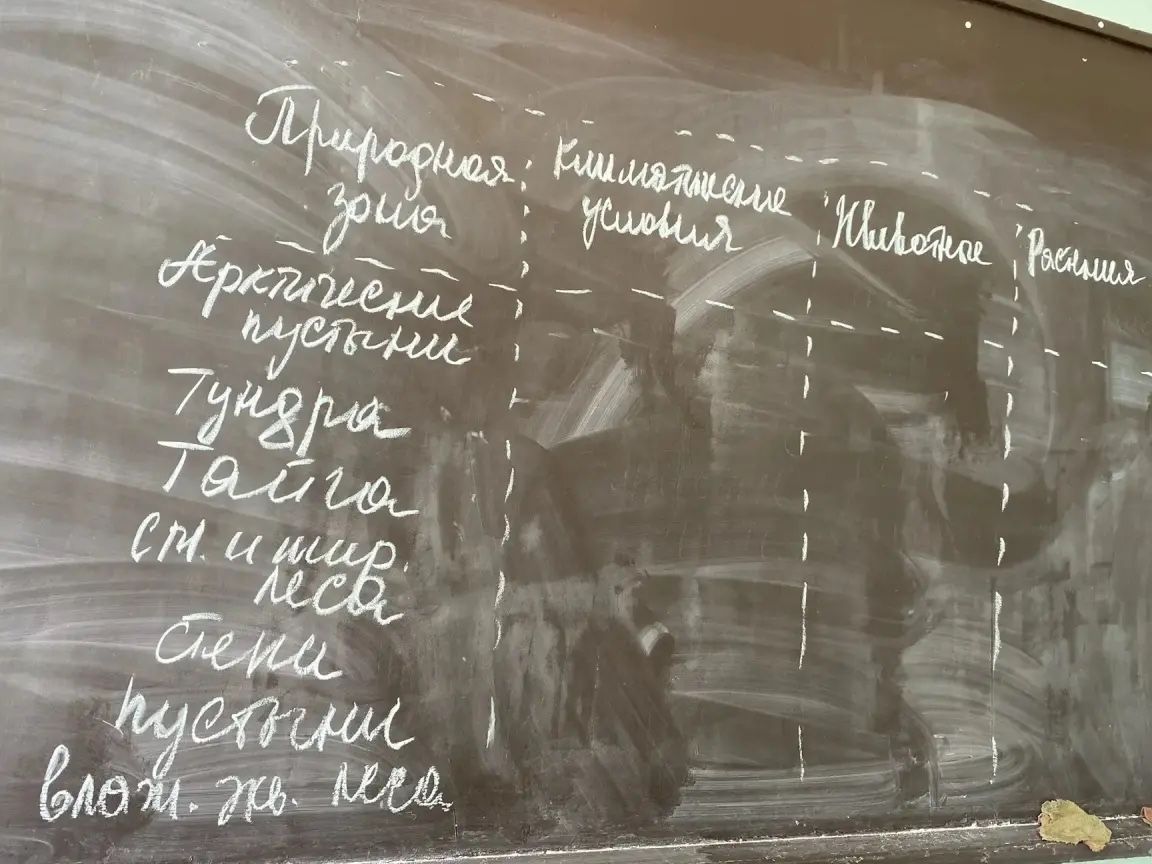 Природная
зона
Климатические
условия
Животные
Растения
Арктические
пустыни
Тундра
Тайга
см. и шир.
леса
Степи
пустыни
влаж. эв. леса